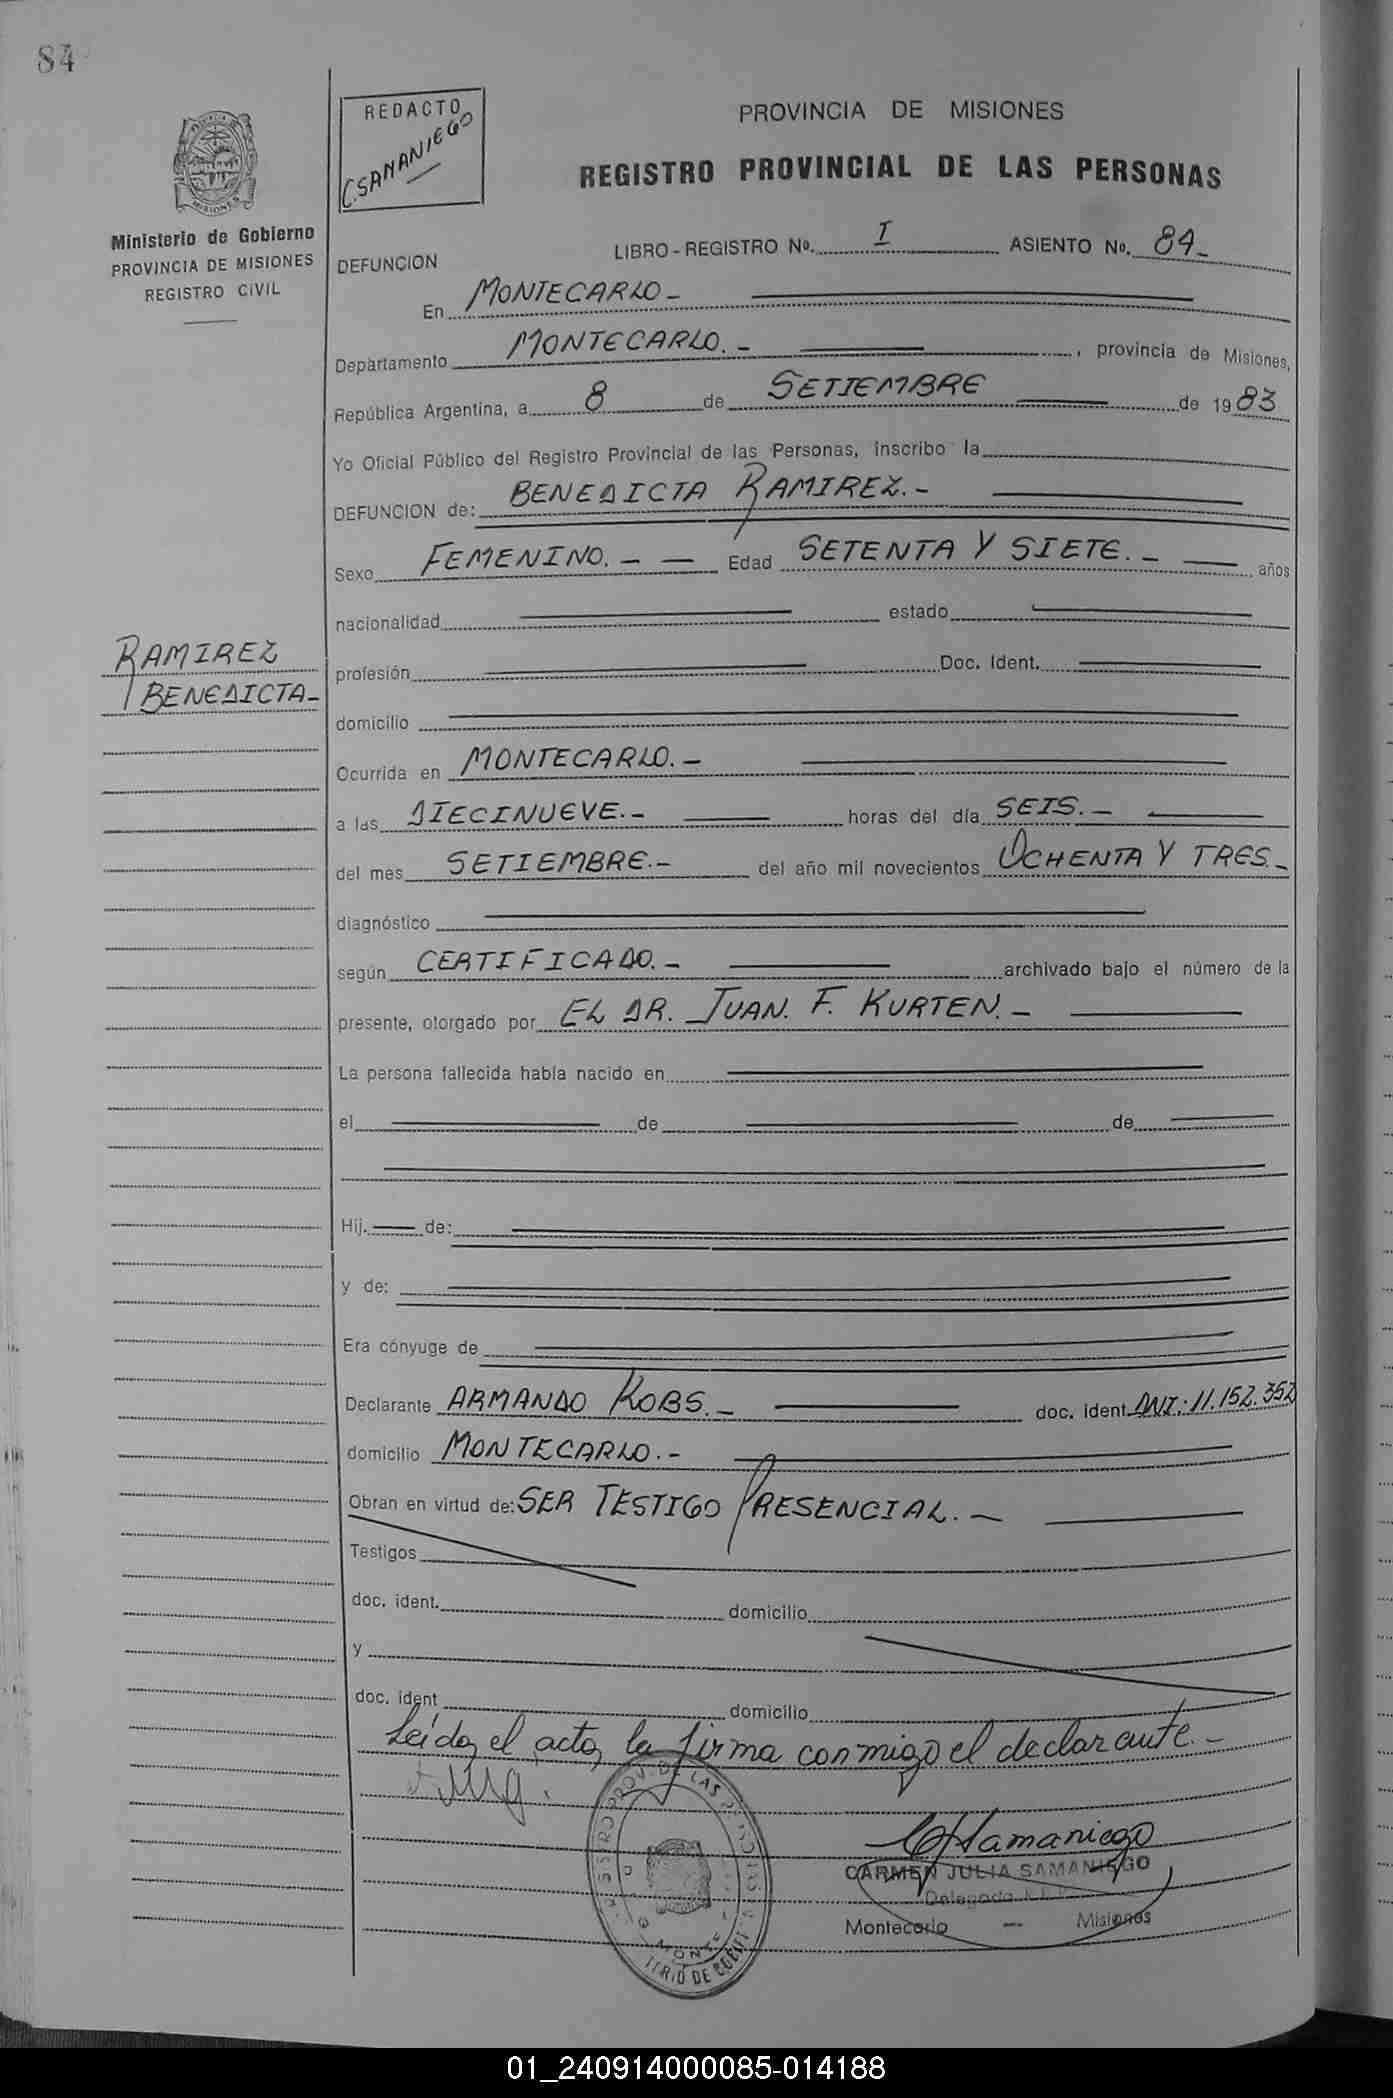 84
REDACTO
C. SAMANIEGO
PROVINCIA DE MISIONES
REGISTRO PROVINCIAL DE LAS PERSONAS
Ministerio de Gobierno
PROVINCIA DE MISIONES
REGISTRO CIVIL
DEFUNCION
LIBRO-REGISTRO No. I ASIENTO No. 84-
En MONTECARLO-
Departamento MONTECARLO.- , provincia de Misiones,
República Argentina, a 8 de SETIEMBRE de 1983
Yo Oficial Público del Registro Provincial de las Personas, inscribo la
DEFUNCION de: BENEDICTA RAMIREZ.-
Sexo FEMENINO.- - Edad SETENTA Y SIETE.- años
nacionalidad estado
RAMIREZ
BENEDICTA-
profesión Doc. Ident.
domicilio
Ocurrida en MONTECARLO.-
a las DIECINUEVE.- horas del día SEIS.-
del mes SETIEMBRE.- del año mil novecientos OCHENTA Y TRES.-
diagnóstico
según CERTIFICADO.- archivado bajo el número de la
presente, otorgado por EL DR. JUAN. F. KURTEN.-
La persona fallecida había nacido en
el de de
Hij. de:
y de:
Era cónyuge de
Declarante ARMANDO KOBS.- doc. ident. DNI.: 11.152.352
domicilio MONTECARLO.-
Obran en virtud de: SER TESTIGO PRESENCIAL.-
Testigos
doc. ident. domicilio
y
doc. ident domicilio
Leída el acta, la firma conmigo el declarante.-
CJSamaniego
CARMEN JULIA SAMANIEGO
Delegada
Montecarlo - Misiones
01_240914000085-014188